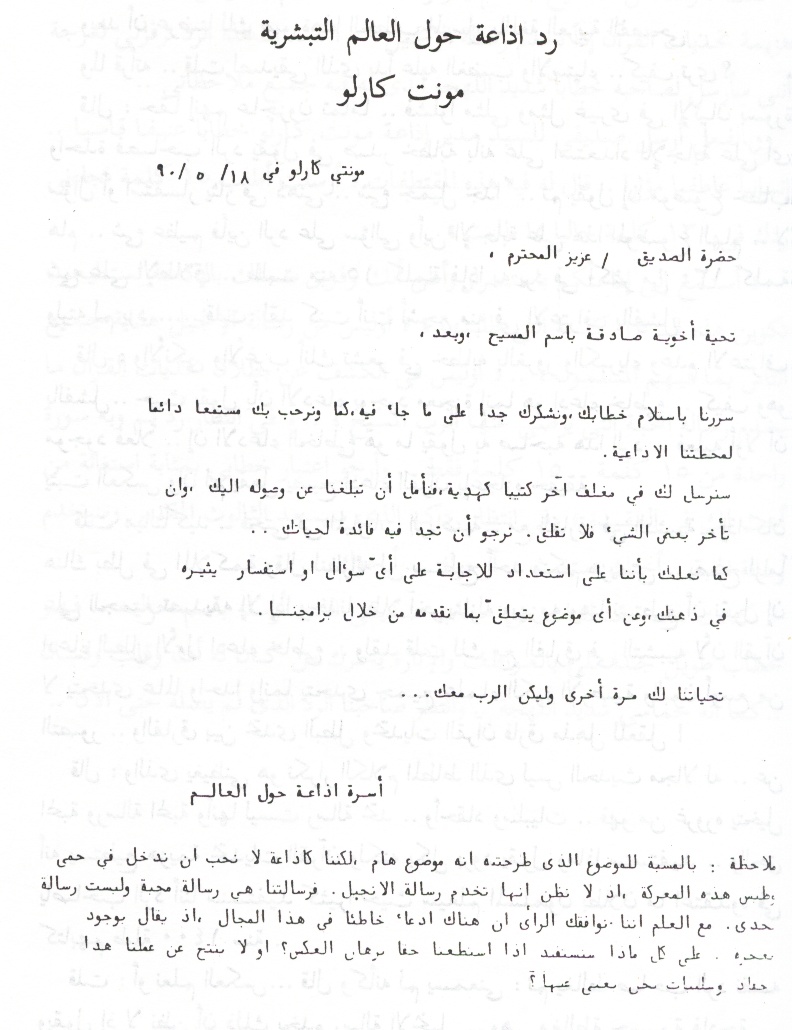 رد اذاعة حول العالم التبشرية
مونت كارلو
مونتي كارلو في ١٨/ ٥ /٩٠
حضرة الصديق / عزيز المحترم ،
تحية أخوية صادقة باسم المسيح ،وبعد ،
سررنا باستلام خطابك ،ونشكرك جدا على ما جاء فيه،كما ونرحب بك مستمعا دائما
لمحطتنا الاذاعية.
سنرسل لك في مغلف آخر كتيبا كهدية،فنأمل أن تبلغنا عن وصوله اليك ،وان
تأخر بعض الشيء فلا تقلق. نرجو أن تجد فيه فائدة لحياتك ..
كما نعلك بأننا على استعداد للاجابة على أى سؤال او استفسار يثيره
في ذهنك،وعن أى موضوع يتعلق بما نقدمه من خلال برامجنـــا.
تحياتنا لك مرة أخرى وليكن الرب معك...
أسرة اذاعة حول العالـــم
ملاحظة : بالنسبة للموضوع الذى طرحته انه موضوع هام ،لكننا كاذاعة لا نحب ان ندخل في حمى
وطيس هذه المعركة ،اذ لا نظن انها تخدم رسالة الانجيل. فرسالتنا هي رسالة محبة وليست رسالة
تحدى. مع العلم اننا نوافقك الرأى ان هناك ادعاء خاطئا في هذا المجال ،اذ يقال بوجود
معجزة . على كل ماذا سنستفيد اذا استطعنا حقا برهان العكس؟ او لا ينتج عن عملنا هذا
وسلبيات نحن بغنى عنها؟